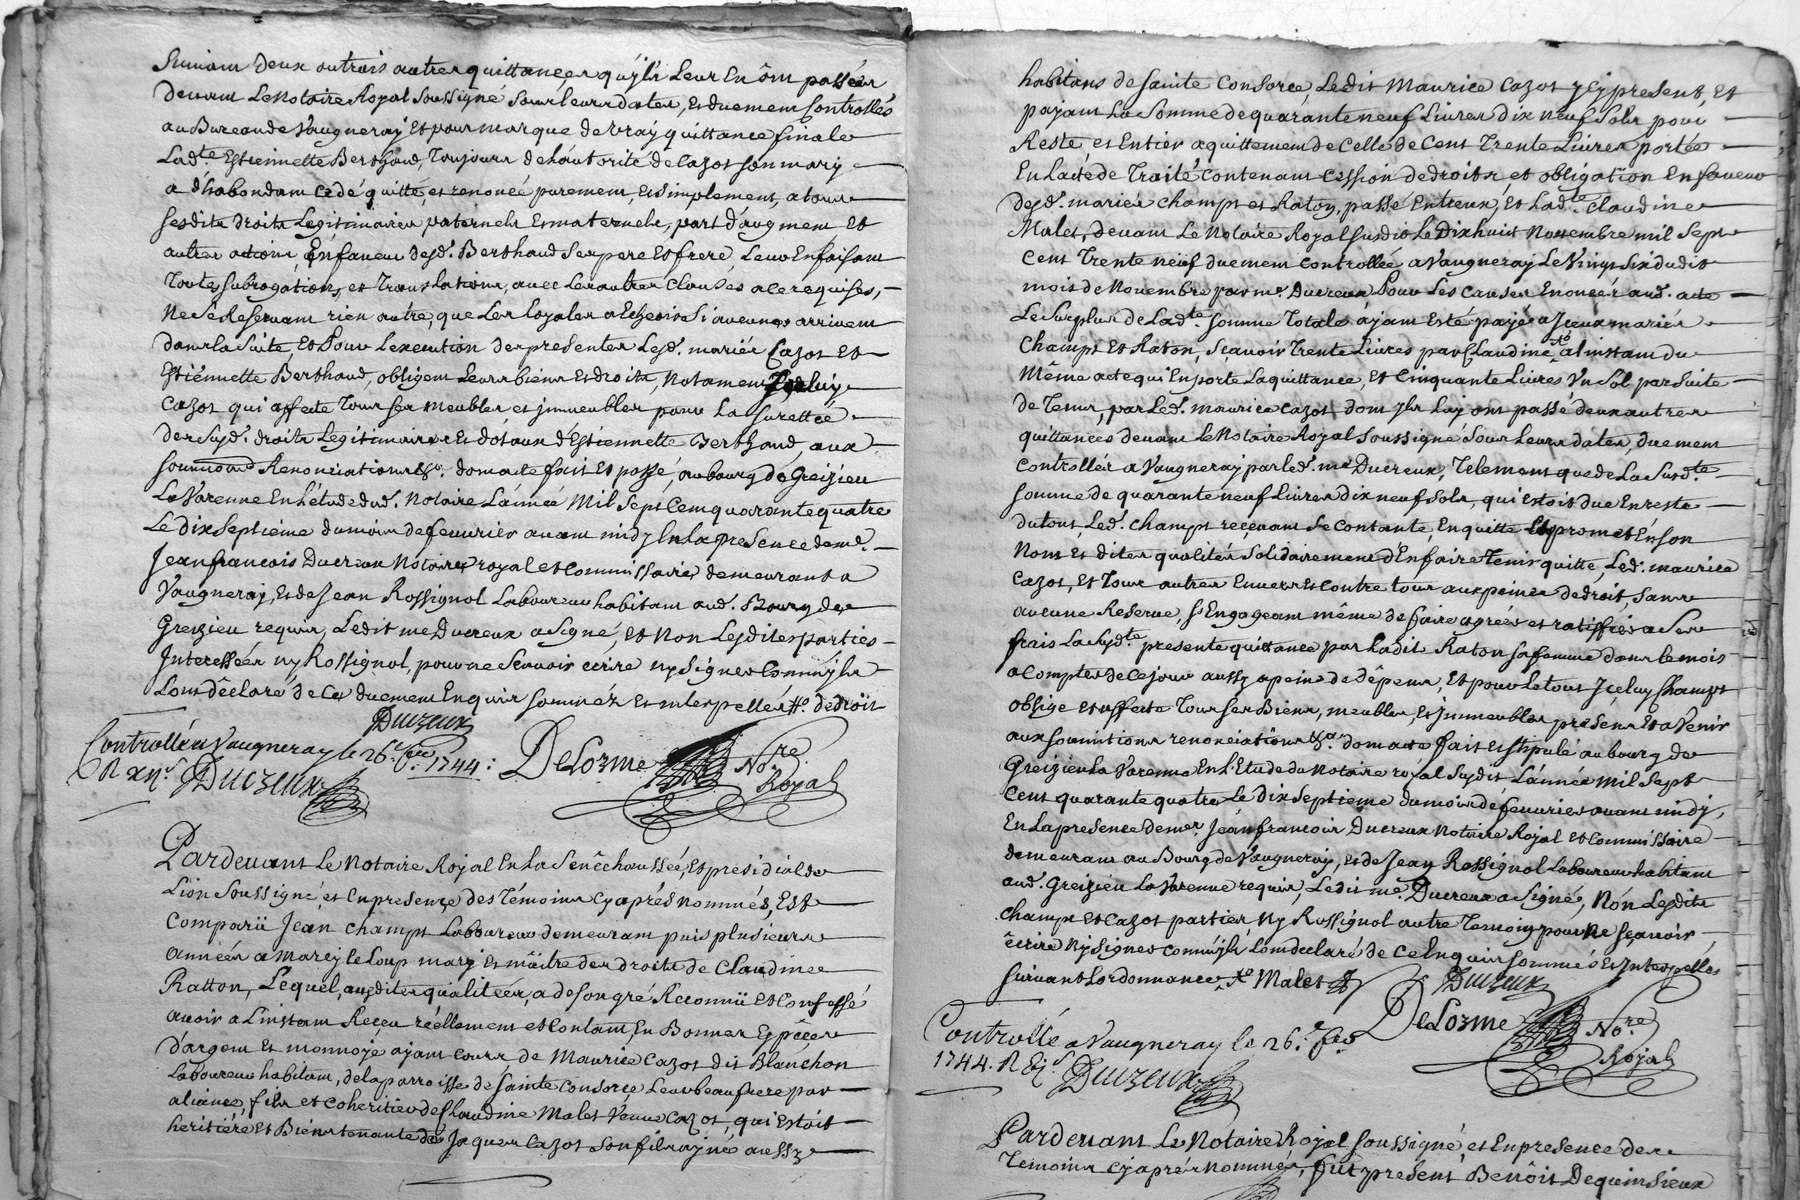 Suivant deux ou trois autres quittances qu'ils Leur En ônt passées
devant Le Notaire Royal Soussigné Sous leurs dates, et duement Controllés
au Bureau de Vaugneray Et pour marque de vray quittance finale
Ladte Estiennette Berthaud, Toujours de L'autorité de Cazot son mary
a d'habondant cedé quitté, et renoncé purement, et simplement, a tous
sesdits droits Legitimaires paternels et maternels, part d'augment et
autres actions, En faveur desd. Berthaud Ses pere et frere, Leur En faisant
Toutes Subrogations, et Translations, avec Les autres Clauses a ce requises,
Ne Se Reservant rien autre, que Les Loyales aEscheoir Si aucunes arrivent
dans la Suite, Et Pour L'execution des presentes Lesd. mariés Cazot et
Estiennette Berthaud, obligent Leurs biens et droits, Notament Iceluy
Cazot qui affecte Tous Ses meubles et immeubles pour La Suretteé
des Susd. droits Legitimaires et dotaux d'Estiennette Berthaud, aux
soumissions Renonciations &a. dont acte fait et passé, au bourg de Greizieu
La Varenne En L'étude dud. Notaire L'année Mil Sept Cent quarante quatre
Le dix Septieme du mois de fevurier avant midy En La presence de me.
Jean francois Ducreux Notaire royal et Commissaire demeurant a
Vaugneray, et de Jean Rossignol Laboureur habitant aud. Bourg de
Greizieu requis, Ledit me Ducreux a Signé, et Non Lesdites parties
Interessées ny Rossignol, pour ne Scavoir ecrire ny Signer Comm'ils
L'ont déclaré de Ce duement Enquis sommez et interpellés
Ducreux
Controllé a Vaugneray le 26e. feu. 1744:
R xns. Ducreux
DeLorme Nore
Royal
Pardevant Le Notaire Royal En La Senêchaussée, et presidial de
Lion Soussigné, et En presence des Témoins Cy aprés nommés, Est
Comparü Jean Champt Laboureur demeurant puis plusieurs
années a Marcy le Loup mary et mâitre des droits de Claudine
Ratton, Lequel, ausdites qualitées, a de son gré Reconnü et Confessé
avoir a L'instant Receu réellement et Contant, En Bonnes Espêces
d'argent et monnoye ajant Cours de Maurice Cazot dit Blanchon
Laboureur habitant, de la parroisse de Sainte Consorçe Leur beau frere par
aliance, fils et coheritier de Claudine Malet Veuve Cazot, qui Estoit
heritiére et Biens tenante de Jaques Cazot Son fils ayné aussy
habitans de Sainte Consorce, Ledit Maurice Cazot y Cy present, et
payant La Somme de quarante neuf Livres dix neuf Sols pour
Reste et Entier aquittement de Celle de Cent Trente Livres portée
En L'acte de Traité contenant Cession de droits, et obligation En faveur
desd. mariés Champt et Raton, passé Entr'eux, Et Ladte. Claudine
Malet, devant Le Notaire Royal Susdit Le Dix huit Novembre mil Sept
Cent Trente neuf duement Controllée a Vaugneray Le Vingt Six dudit
mois de Novembre par me. Ducreux Pour Les Causes Enoncées aud. acte
Le Surplus de Ladte. Somme Totale ajant Esté payé a Iceux mariés
Champt et Raton, Scavoir Trente Livres par Claudine a L'instant du
Même acte qui En porte La quittance, Et Cinquante Livres Vn Sol par Suite
de Tems, par Led. Maurice Cazot, dont Ils Luy ont passé deux autres
quittances devant Le Notaire Royal Soussigné Sous Leurs dates, duement
Controllés a Vaugneray par led. me Ducreux, Telement que de La Susdte.
Somme de quarante neuf Livres dix neuf Sols, qui Estoit due En reste
du tout, Led. Champt reçevant Se Contente, En quitte Et promet En son
Nom et dites qualités Solidairement d'En faire Tenir quitte, Led. Maurice
Cazot, Et Tous autres Envers et Contre tous aux peines de droit, Sans
aucune Reserve, S'Engageant même de faire agréer et ratiffier a Ses
frais La Susdte. presente quittance par Ladit Raton sa femme dans le mois
a Compter de Ce jour aussy a peine de dêpens, Et pour Le tout Iceluy Champt
oblige et affecte Tous Ses Biens, meubles, Et Immeubles presens Et a Venir
aux soumitions renonciations &a. dont acte fait et stipulé au bourg de
Greizieu La Varenne En L'Etude du Notaire royal Susdit L'année Mil Sept
Cent quarante quatre Le Dix Septieme du mois de fevurier avant midy,
En La presence de mes Jean francois Ducreux Notaire Royal et Commissaire
demeurant au Bourg de Vaugneray, et de Jean Rossignol Laboureur habitant
aud. Greizieu La Varenne requis, Ledit me. Ducreux a Signé, Non Lesdits
Champt et Cazot parties Ny Rossignol autre Temoin pour Ne Sçavoir
êcrire Ny Signer Comm'ils L'ont declaré de Ce Enquis sommés et Interpellés
Suivant L'ordonnance, Malet
Ducreux
Controllé a Vaugneray le 26e. feu
1744. R
Ducreux
DeLorme Nore
Royal
Pardevant Le Notaire Royal Soussigné, et En presence des
Témoins Cy aprés Nommés, fut present Benôit Dequinsieux